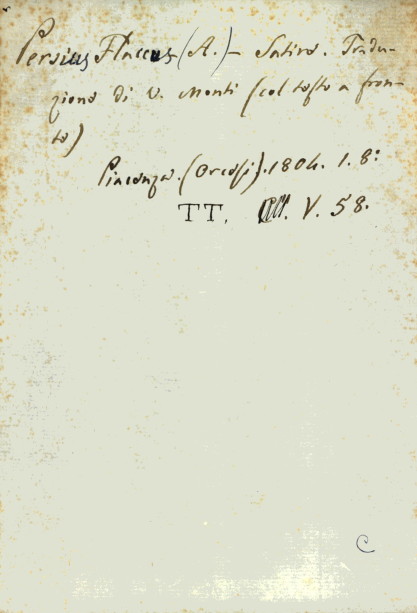 Persius Flaccus (A.) - Satire. Tradu-
zione di V. Monti (col testo a fron-
te)
Piacenza. (Orcesi). 1804. 1. 8:
TT. V. 58.
C